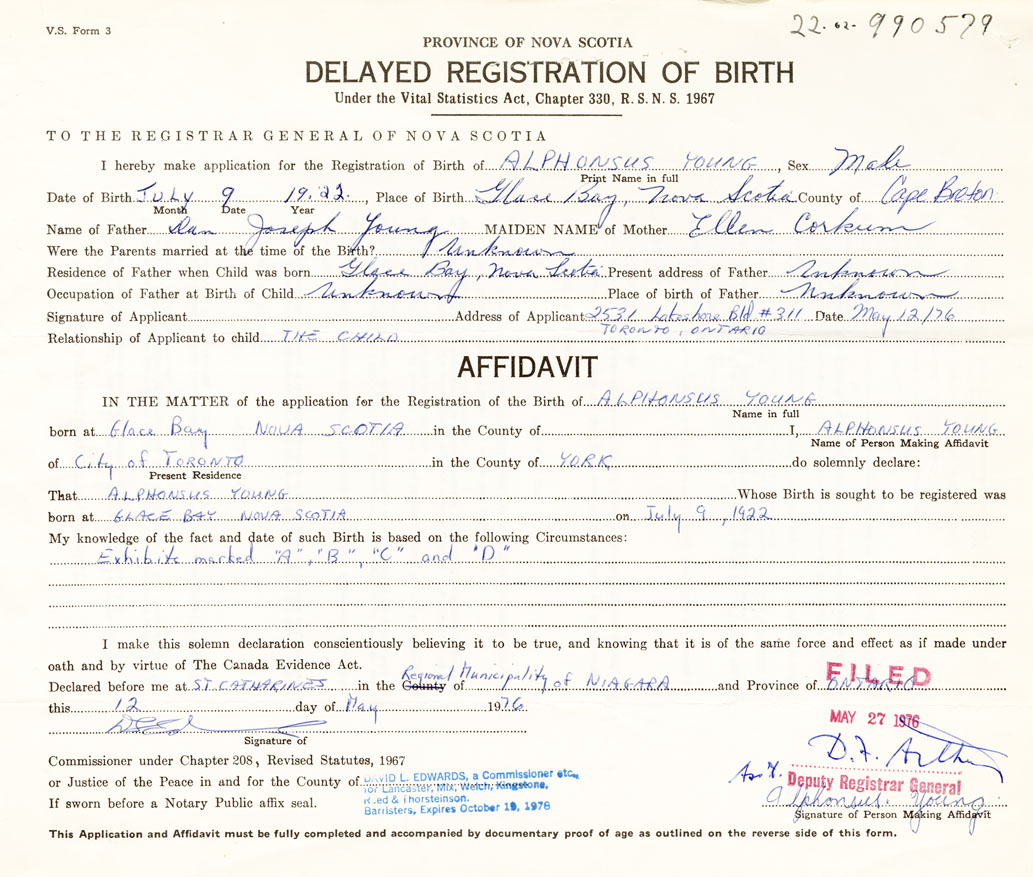 V.S. Form 3
22-62-990579
PROVINCE OF NOVA SCOTIA
DELAYED REGISTRATION OF BIRTH
Under the Vital Statistics Act, Chapter 330, R. S. N. S. 1967
TO THE REGISTRAR GENERAL OF NOVA SCOTIA
I hereby make application for the Registration of Birth of ALPHONSUS YOUNG, Sex Male
Print Name in full
Date of Birth JULY 9 1922, Place of Birth Glace Bay, Nova Scotia County of Cape Breton
Month Date Year
Name of Father Dan Joseph Young MAIDEN NAME of Mother Ellen Corkum
Were the Parents married at the time of the Birth? Unknown
Residence of Father when Child was born Glace Bay, Nova Scotia Present address of Father Unknown
Occupation of Father at Birth of Child Unknown Place of birth of Father Unknown
Signature of Applicant Address of Applicant 2531 Lakeshore Bld #311 Date May 12/76
TORONTO, ONTARIO
Relationship of Applicant to child THE CHILD
AFFIDAVIT
IN THE MATTER of the application for the Registration of the Birth of ALPHONSUS YOUNG
Name in full
born at Glace Bay NOVA SCOTIA in the County of I, ALPHONSUS YOUNG
Name of Person Making Affidavit
of City of TORONTO in the County of YORK do solemnly declare:
Present Residence
That ALPHONSUS YOUNG Whose Birth is sought to be registered was
born at GLACE BAY NOVA SCOTIA on July 9, 1922
My knowledge of the fact and date of such Birth is based on the following Circumstances:
Exhibits marked "A", "B", "C" and "D"
I make this solemn declaration conscientiously believing it to be true, and knowing that it is of the same force and effect as if made under
oath and by virtue of The Canada Evidence Act.
Declared before me at ST. CATHARINES in the County Regional Municipality of NIAGARA and Province of ONTARIO
FILED
this 12 day of May 1976
MAY 27 1976
Signature of
Commissioner under Chapter 208, Revised Statutes, 1967
or Justice of the Peace in and for the County of
If sworn before a Notary Public affix seal.
DAVID L. EDWARDS, a Commissioner etc.,
for Lancaster, Mix, Welch, Kingstone,
Reed & Thorsteinson.
Barristers, Expires October 19, 1978
Deputy Registrar General
Alphonsus Young
Signature of Person Making Affidavit
This Application and Affidavit must be fully completed and accompanied by documentary proof of age as outlined on the reverse side of this form.